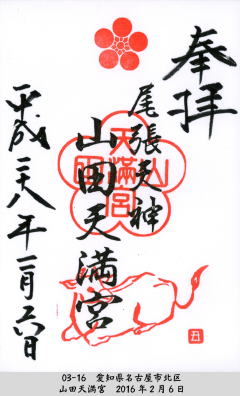 奉拝
尾張天神
山田天満宮
天満宮
山田
平成二十八年二月六日
丑
03-16 愛知県名古屋市北区
山田天満宮 2016年2月6日